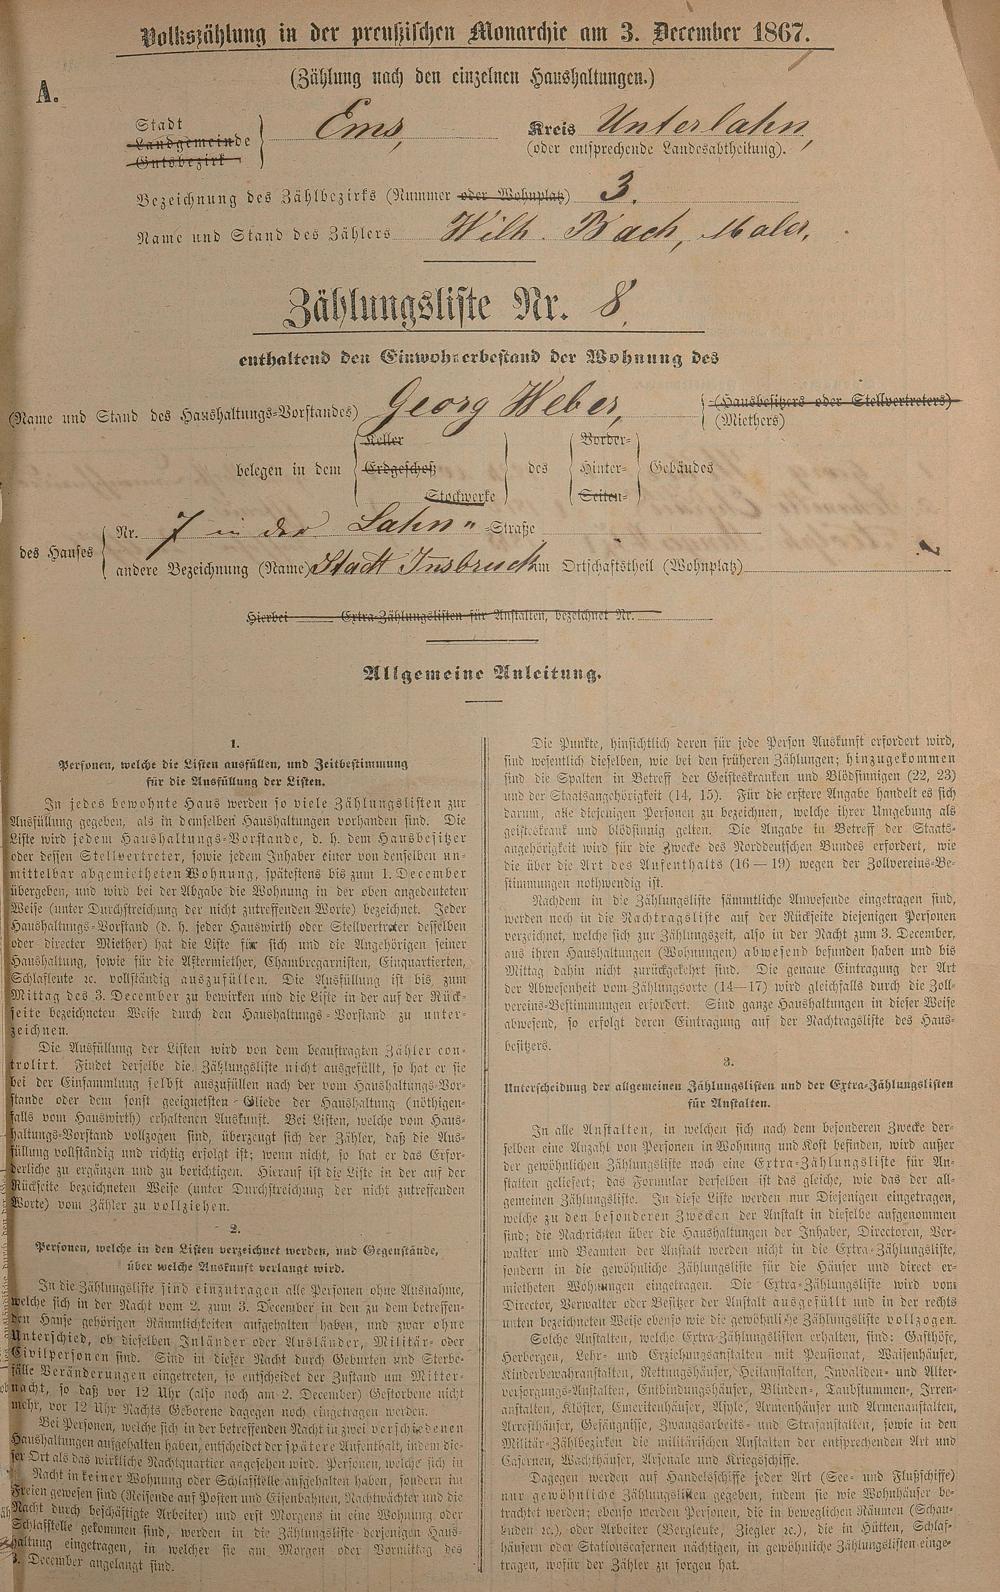 Volkszählung in der preußischen Monarchie am 3. December 1867.
(Zählung nach den einzelnen Haushaltungen.)
A.
Stadt
Landgemeinde
Gutsbezirk
Ems,
Kreis Unterlahn,
(oder entsprechende Landesabtheilung).
Bezeichnung des Zählbezirks (Nummer oder Wohnplatz) 3.
Name und Stand des Zählers Wilh. Bach, Maler,
Zählungsliste Nr. 8,
enthaltend den Einwohnerbestand der Wohnung des
(Name und Stand des Haushaltungs-Vorstandes) Georg Weber,
(Hausbesitzers oder Stellvertreters)
(Miethers)
belegen in dem
Keller
Erdgeschoß
Stockwerke
des
Vorder-
Hinter-
Seiten-
Gebäudes
des Hauses
Nr. 7 in der Lahn" -Straße
andere Bezeichnung (Name) Stadt Insbruck im Ortschaftstheil (Wohnplatz)
Hierbei Extra-Zählungslisten für Anstalten, bezeichnet Nr.
Allgemeine Anleitung.
1.
Personen, welche die Listen ausfüllen, und Zeitbestimmung
für die Ausfüllung der Listen.
In jedes bewohnte Haus werden so viele Zählungslisten zur
Ausfüllung gegeben, als in demselben Haushaltungen vorhanden sind. Die
Liste wird jedem Haushaltungs-Vorstande, d. h. dem Hausbesitzer
oder dessen Stellvertreter, sowie jedem Inhaber einer von denselben un-
mittelbar abgemietheten Wohnung, spätestens bis zum 1. December
übergeben, und wird bei der Abgabe die Wohnung in der oben angedeuteten
Weise (unter Durchstreichung der nicht zutreffenden Worte) bezeichnet. Jeder
Haushaltungs-Vorstand (d. h. jeder Hauswirth oder Stellvertreter desselben
oder directer Miether) hat die Liste für sich und die Angehörigen seiner
Haushaltung, sowie für die Aftermiether, Chambregarnisten, Einquartierten,
Schlafleute ꝛc. vollständig auszufüllen. Die Ausfüllung ist bis zum
Mittag des 3. December zu bewirken und die Liste in der auf der Rück-
seite bezeichneten Weise durch den Haushaltungs-Vorstand zu unter-
zeichnen.
Die Ausfüllung der Listen wird von dem beauftragten Zähler con-
trolirt. Findet derselbe die Zählungsliste nicht ausgefüllt, so hat er sie
bei der Einsammlung selbst auszufüllen nach der vom Haushaltungs-Vor-
stande oder dem sonst geeignetsten Gliede der Haushaltung (nöthigen-
falls vom Hauswirth) erhaltenen Auskunft. Bei Listen, welche vom Haus-
haltungs-Vorstand vollzogen sind, überzeugt sich der Zähler, daß die Aus-
füllung vollständig und richtig erfolgt ist; wenn nicht, so hat er das Erfor-
derliche zu ergänzen und zu berichtigen. Hierauf ist die Liste in der auf der
Rückseite bezeichneten Weise (unter Durchstreichung der nicht zutreffenden
Worte) vom Zähler zu vollziehen.
2.
Personen, welche in den Listen verzeichnet werden, und Gegenstände,
über welche Auskunft verlangt wird.
In die Zählungsliste sind einzutragen alle Personen ohne Ausnahme,
welche sich in der Nacht vom 2. zum 3. December in den zu dem betreffen-
den Hause gehörigen Räumlichkeiten aufgehalten haben, und zwar ohne
Unterschied, ob dieselben Inländer oder Ausländer, Militär- oder
Civilpersonen sind. Sind in dieser Nacht durch Geburten und Sterbe-
fälle Veränderungen eingetreten, so entscheidet der Zustand um Mitter-
nacht, so daß vor 12 Uhr (also noch am 2. December) Gestorbene nicht
mehr, vor 12 Uhr Nachts Geborene dagegen noch eingetragen werden.
Bei Personen, welche sich in der betreffenden Nacht in zwei verschiedenen
Haushaltungen aufgehalten haben, entscheidet der spätere Aufenthalt, indem die-
ser Ort als das wirkliche Nachtquartier angesehen wird. Personen, welche sich in
Nacht in keiner Wohnung oder Schlafstelle aufgehalten haben, sondern im
Freien gewesen sind (Reisende auf Posten und Eisenbahnen, Nachtwächter und die
Nacht durch beschäftigte Arbeiter) und erst Morgens in eine Wohnung oder
Schlafstelle gekommen sind, werden in die Zählungsliste derjenigen Haus-
haltung eingetragen, in welcher sie am Morgen oder Vormittag des
3. December angelangt sind.
Die Punkte, hinsichtlich deren für jede Person Auskunft erfordert wird,
sind wesentlich dieselben, wie bei den früheren Zählungen; hinzugekommen
sind die Spalten in Betreff der Geisteskranken und Blödsinnigen (22, 23)
und der Staatsangehörigkeit (14, 15). Für die erstere Angabe handelt es sich
darum, alle diejenigen Personen zu bezeichnen, welche ihrer Umgebung als
geisteskrank und blödsinnig gelten. Die Angabe in Betreff der Staats-
angehörigkeit wird für die Zwecke des Norddeutschen Bundes erfordert, wie
die über die Art des Aufenthalts (16—19) wegen der Zollvereins-Be-
stimmungen nothwendig ist.
Nachdem in die Zählungsliste sämmtliche Anwesende eingetragen sind,
werden noch in die Nachtragsliste auf der Rückseite diejenigen Personen
verzeichnet, welche sich zur Zählungszeit, also in der Nacht zum 3. December,
aus ihren Haushaltungen (Wohnungen) abwesend befunden haben und bis
Mittag dahin nicht zurückgekehrt sind. Die genaue Eintragung der Art
der Abwesenheit vom Zählungsorte (14—17) wird gleichfalls durch die Zoll-
vereins-Bestimmungen erfordert. Sind ganze Haushaltungen in dieser Weise
abwesend, so erfolgt deren Eintragung auf der Nachtragsliste des Haus-
besitzers.
3.
Unterscheidung der allgemeinen Zählungslisten und der Extra-Zählungslisten
für Anstalten.
In alle Anstalten, in welchen sich nach dem besonderen Zwecke der-
selben eine Anzahl von Personen in Wohnung und Kost befinden, wird außer
der gewöhnlichen Zählungsliste noch eine Extra-Zählungsliste für An-
stalten geliefert; das Formular derselben ist das gleiche, wie das der all-
gemeinen Zählungsliste. In diese Liste werden nur Diejenigen eingetragen,
welche zu den besonderen Zwecken der Anstalt in dieselbe aufgenommen
sind; die Nachrichten über die Haushaltungen der Inhaber, Directoren, Ver-
walter und Beamten der Anstalt werden nicht in die Extra-Zählungsliste,
sondern in die gewöhnliche Zählungsliste für die Häuser und direct er-
mietheten Wohnungen eingetragen. Die Extra-Zählungsliste wird vom
Director, Verwalter oder Besitzer der Anstalt ausgefüllt und in der rechts
unten bezeichneten Weise ebenso wie die gewöhnliche Zählungsliste vollzogen.
Solche Anstalten, welche Extra-Zählungslisten erhalten, sind: Gasthöfe,
Herbergen, Lehr- und Erziehungsanstalten mit Pensionat, Waisenhäuser,
Kinderbewahranstalten, Rettungshäuser, Heilanstalten, Invaliden- und Alter-
versorgungs-Anstalten, Entbindungshäuser, Blinden-, Taubstummen-, Irren-
anstalten, Klöster, Emeritenhäuser, Asyle, Armenhäuser und Armenanstalten,
Arresthäuser, Gefängnisse, Zwangsarbeits- und Strafanstalten, sowie in den
Militär-Zählbezirken die militärischen Anstalten der entsprechenden Art und
Casernen, Wachthäuser, Arsenale und Kriegsschiffe.
Dagegen werden auf Handelsschiffe jeder Art (See- und Flußschiffe)
nur gewöhnliche Zählungslisten gegeben, indem sie wie Wohnhäuser be-
trachtet werden; ebenso werden Personen, die in beweglichen Räumen (Schau-
buden ꝛc.), oder Arbeiter (Bergleute, Ziegler ꝛc.), die in Hütten, Schlaf-
häusern oder Stationscasernen nächtigen, in gewöhnliche Zählungslisten einge-
tragen, wofür der Zähler zu sorgen hat.